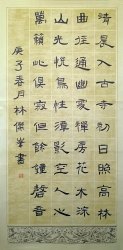 清晨入古寺初日照高林
曲徑通幽處禪房花木深
山光悅鳥性潭影空人心
萬籟此俱寂但餘鐘磬音
庚子春月林峯書